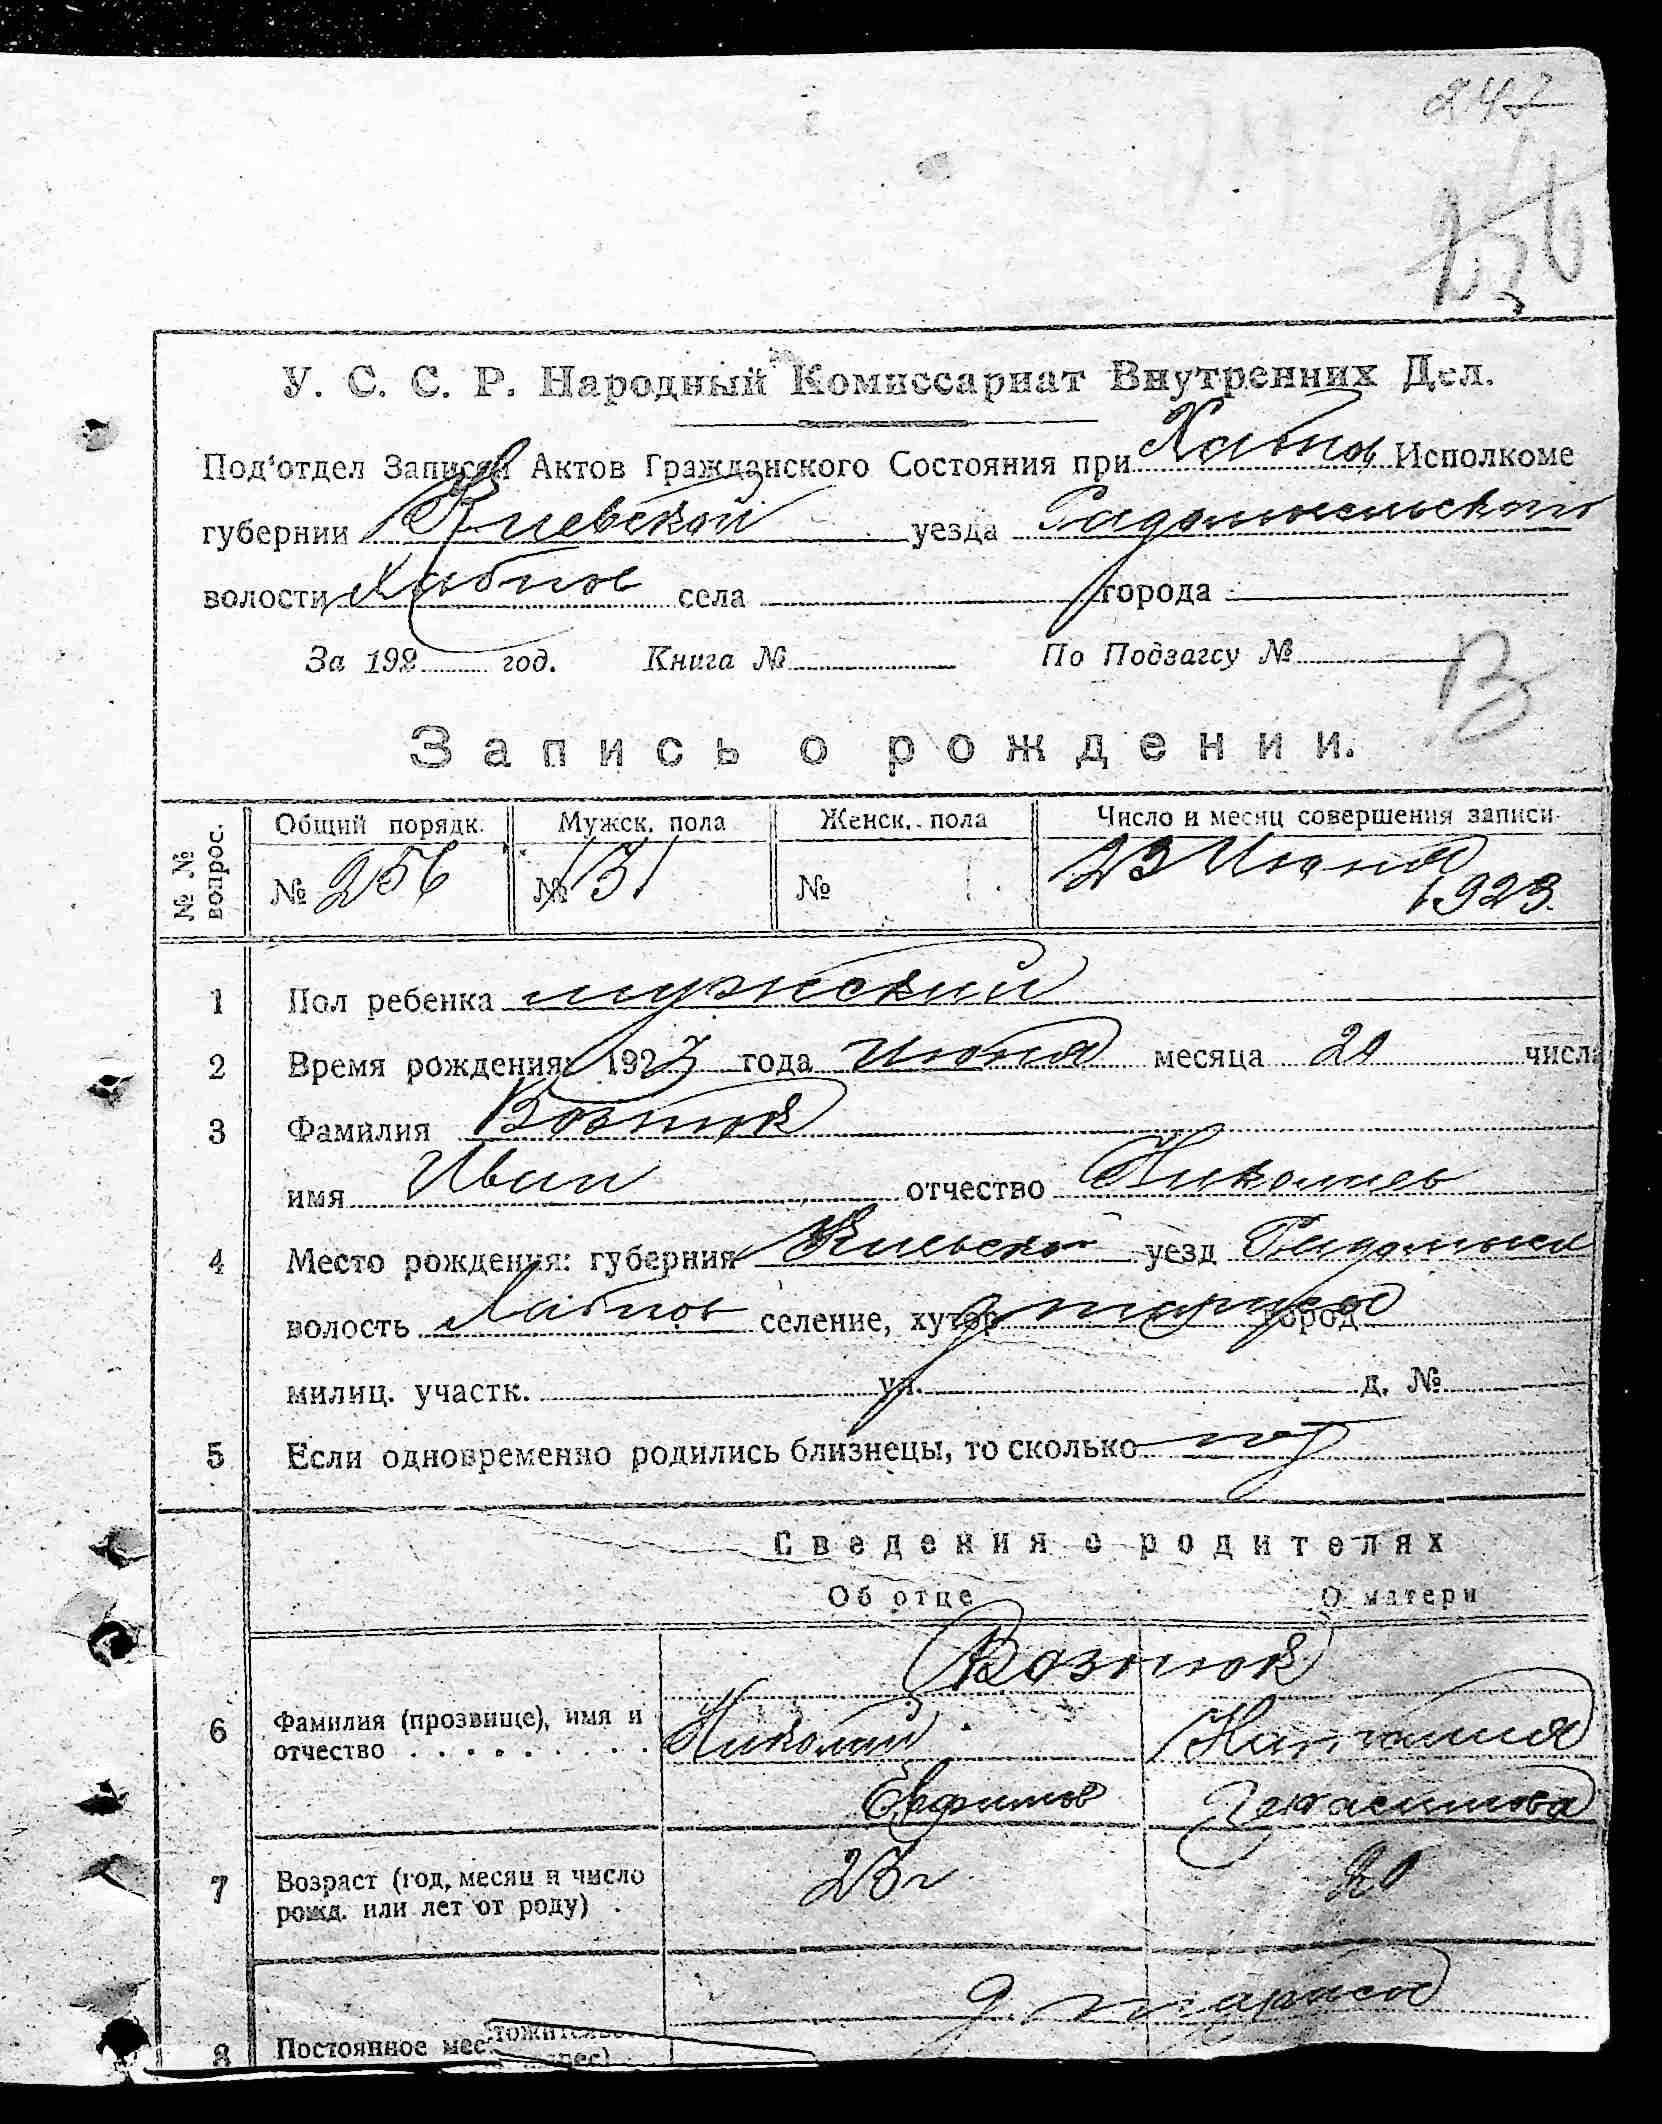 842
256
У. С. С. Р. Народный Комиссариат Внутренних Дел.
Под'отдел Записей Актов Гражданского Состояния при Хабнов Исполкоме
губернии Киевской уезда Радомысльского
волости Хабнов села города
За 192 год. Книга № По Подзагсу №
В
Запись о рождении.
№ № вопрос. Общий порядк. Мужск. пола Женск. пола Число и месяц совершения записи
№ 256 № 131 № 23 Июня
1923
1 Пол ребенка мужский
2 Время рождения: 1923 года Июня месяца 20 числа
3 Фамилия Вознюк
имя Иван отчество Николаев
4 Место рождения: губерния Киевско уезд
волость Хабнов селение, хутор город
милиц. участк. ул. д. №
5 Если одновременно родились близнецы, то сколько
Сведения о родителях
Об отце О матери
Вознюк
6 Фамилия (прозвище), имя и Николай Наталия
отчество
Евфимов Герасимова
7 Возраст (год, месяц и число 23 г 20
рожд. или лет от роду)
8 Постоянное мес